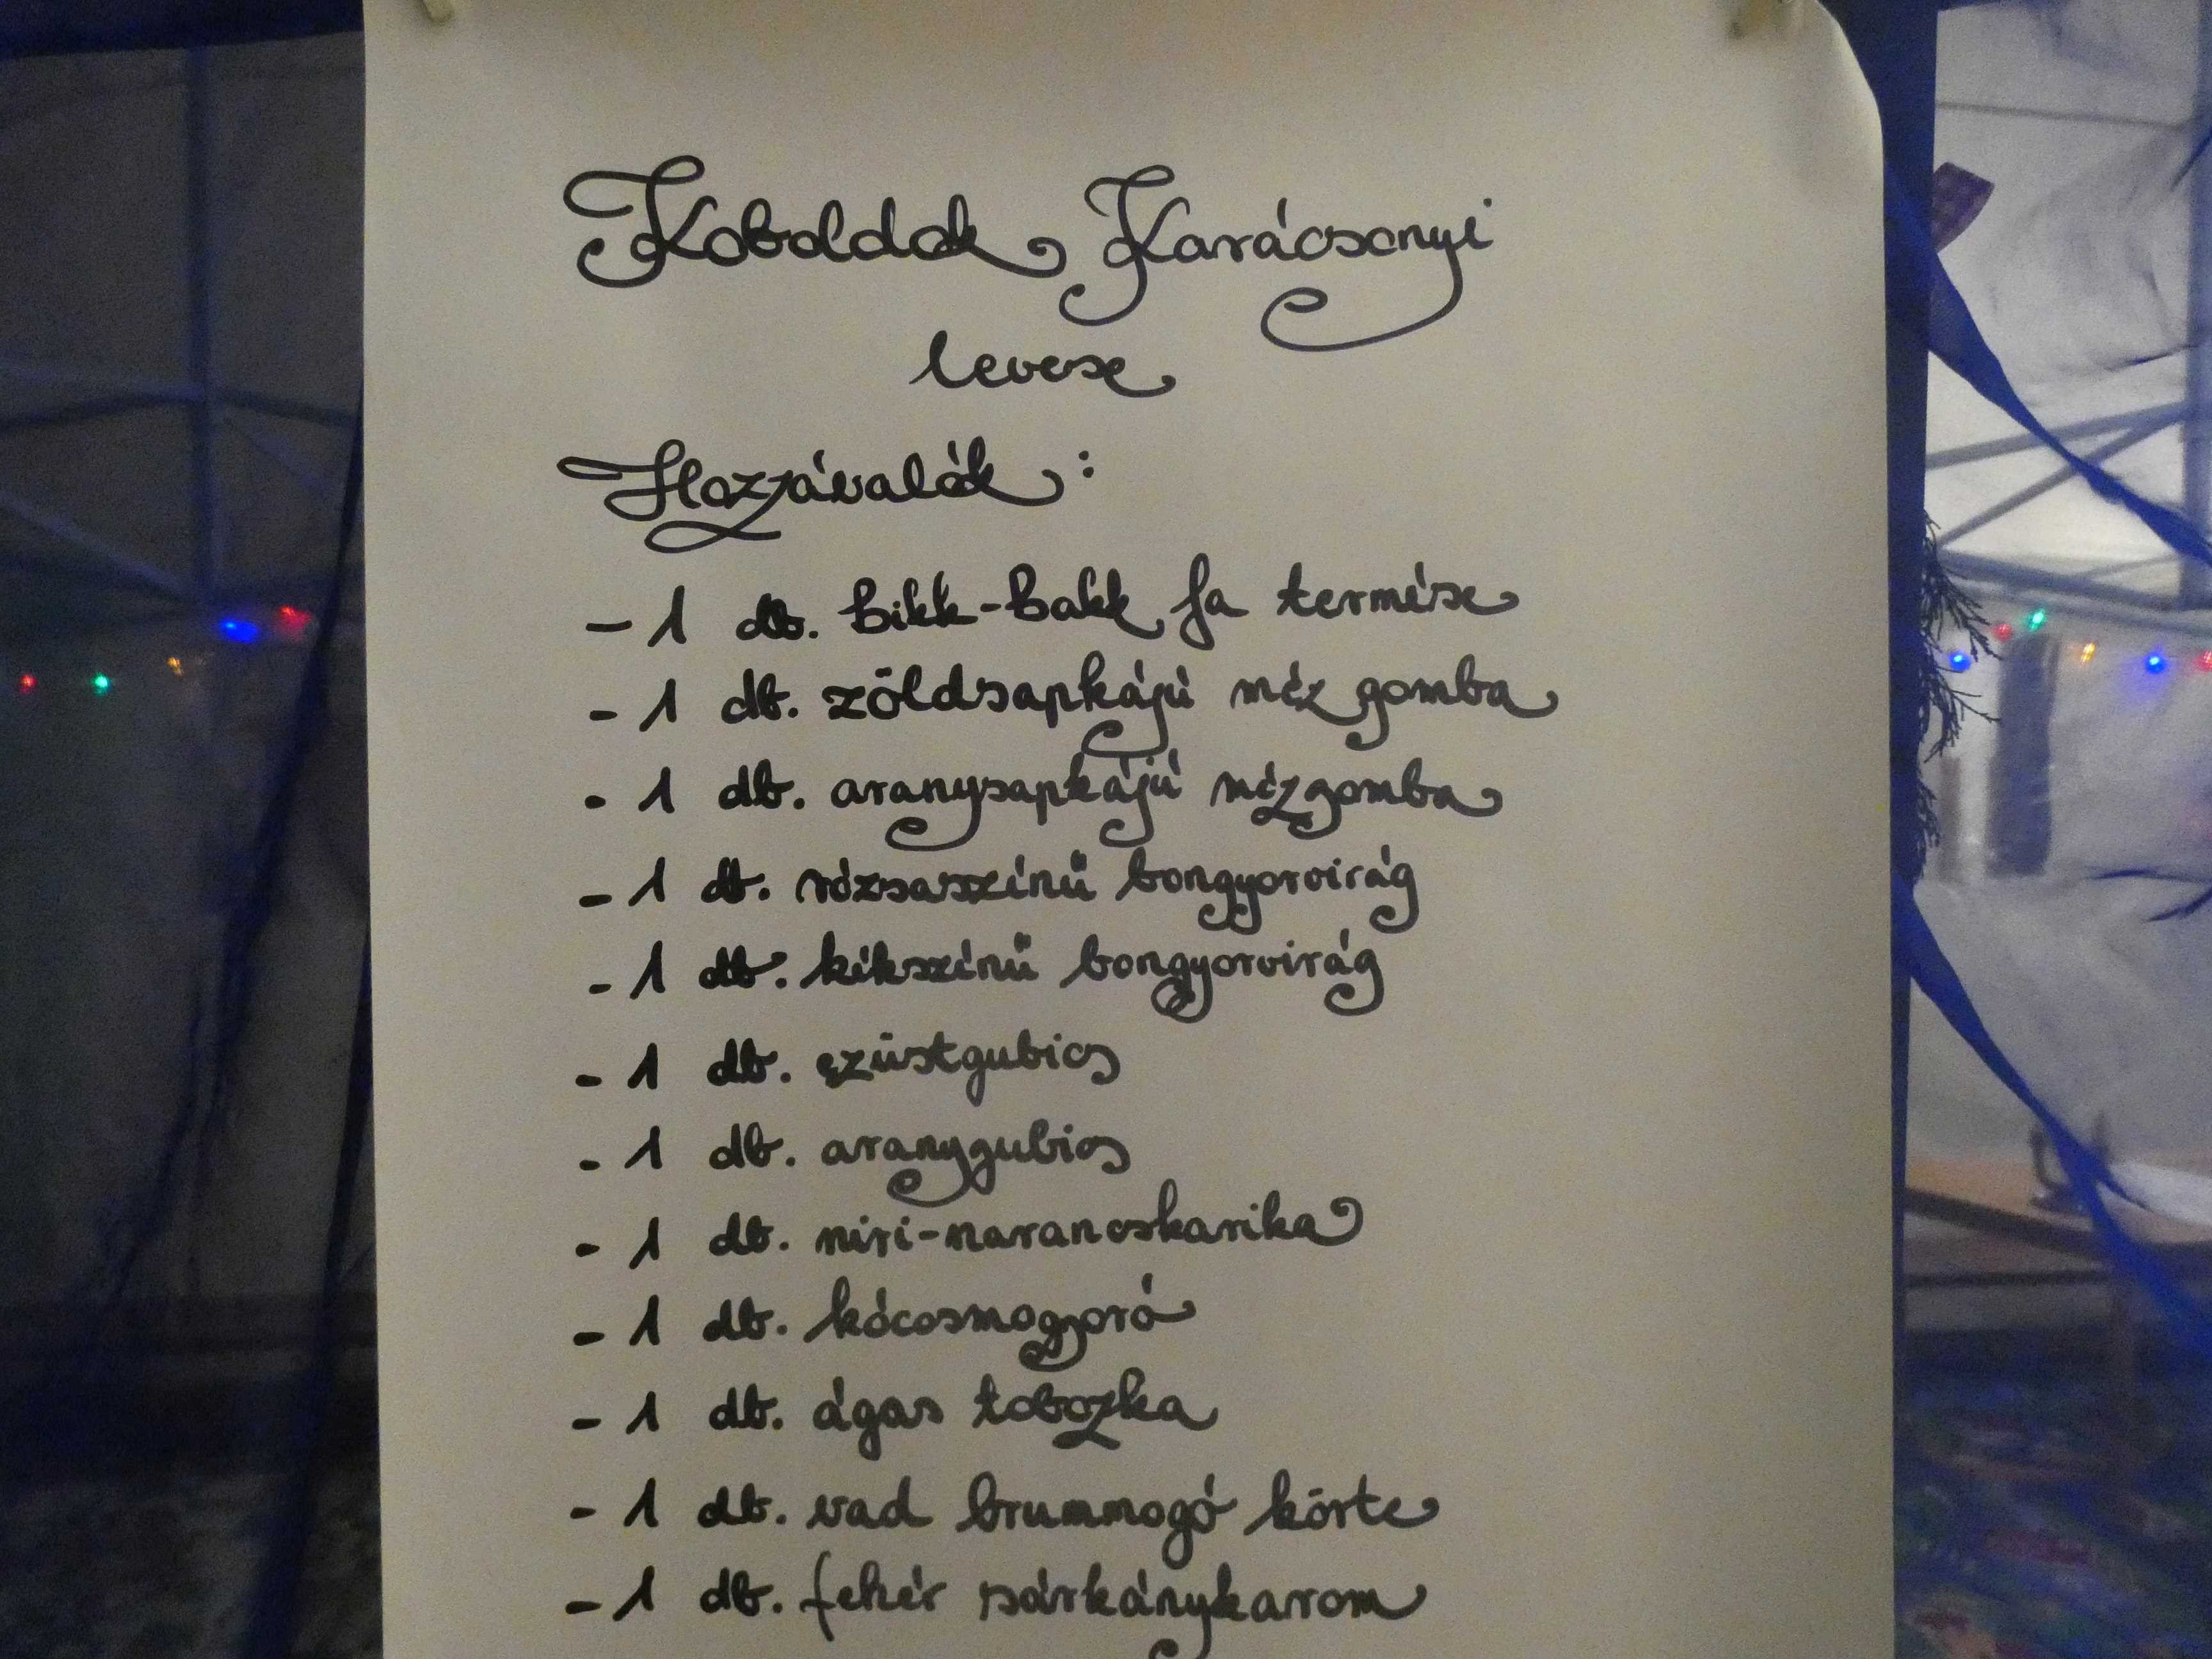 Koboldok Karácsonyi
levese
Hozzávalók:
- 1 db. bikk-bakk fa termése
- 1 db. zöldsapkájú méz gomba
- 1 db. aranysapkájú mézgomba
- 1 db. rózsaszínű bongyorvirág
- 1 db. kékszínű bongyorvirág
- 1 db. ezüstgubics
- 1 db. aranygubics
- 1 db. niri-narancskarika
- 1 db. kócosmogyoró
- 1 db. ágas tobozka
- 1 db. vad brummogó körte
- 1 db. fehér sárkánykarom